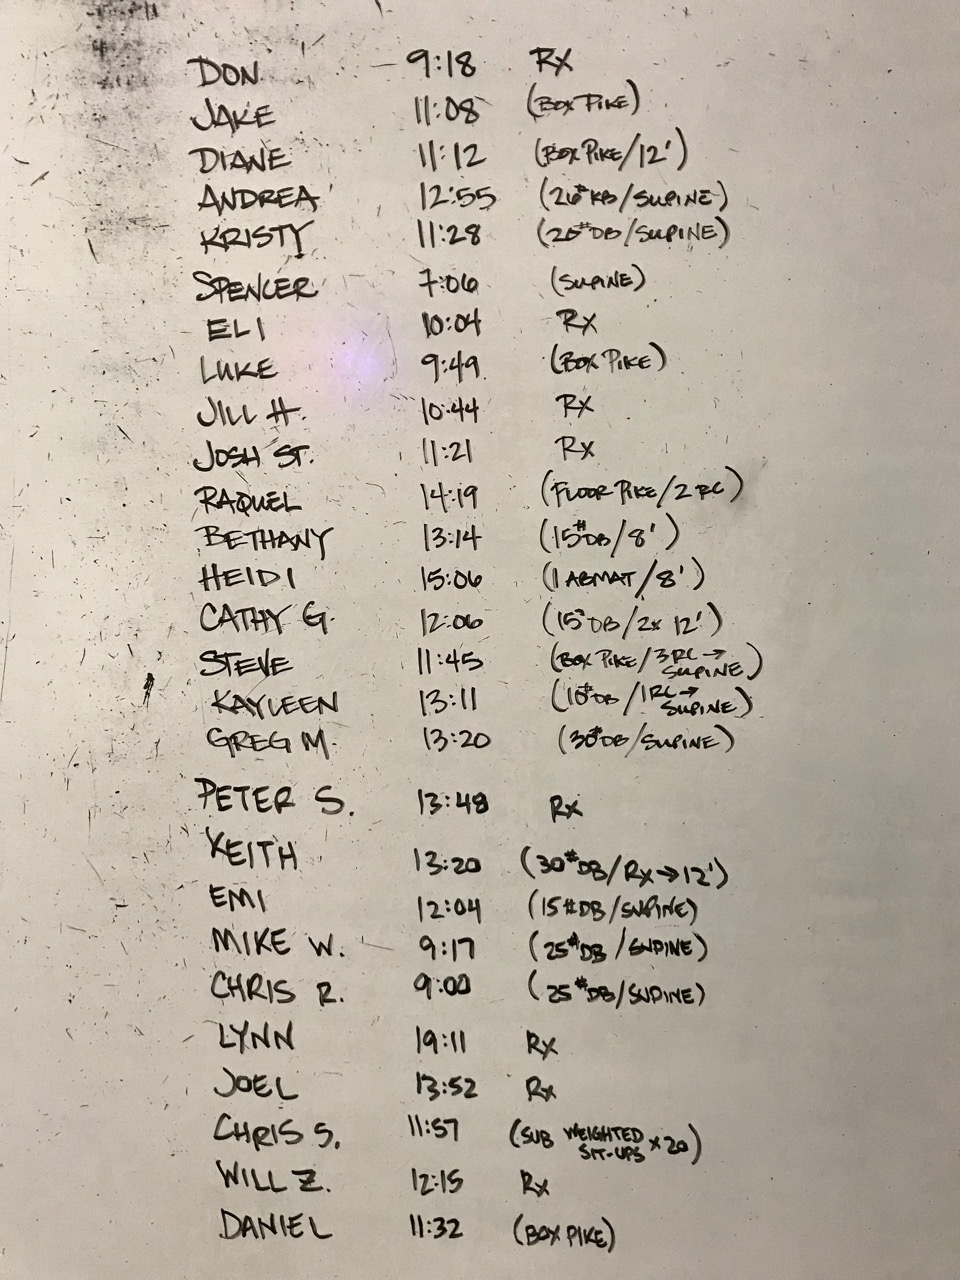 DON 9:18 RX
JAKE 11:08 (BOX PIKE)
DIANE 11:12 (BOX PIKE/12')
ANDREA 12:55 (26# KB/SUPINE)
KRISTY 11:28 (20#DB/SUPINE)
SPENCER 7:06 (SUPINE)
ELI 10:04 RX
LUKE 9:49 (BOX PIKE)
JILL H. 10:44 RX
JOSH ST. 11:21 RX
RAQUEL 14:19 (FLOOR PIKE/2 RC)
BETHANY 13:14 (15#DB/8')
HEIDI 15:06 (1 ABMAT/8')
CATHY G. 12:06 (15#DB/2x 12')
STEVE 11:45 (BOX PIKE/3RC→ SUPINE)
KAYLEEN 13:11 (10#DB/1RC→ SUPINE)
GREG M. 13:20 (30#DB/SUPINE)
PETER S. 13:48 Rx
KEITH 13:20 (30#DB/Rx→12')
EMI 12:04 (15#DB/SUPINE)
MIKE W. 9:17 (25#DB/SUPINE)
CHRIS R. 9:00 (25#DB/SUPINE)
LYNN 19:11 Rx
JOEL 13:52 Rx
CHRIS S. 11:57 (SUB WEIGHTED SIT-UPS x20)
WILL Z. 12:15 Rx
DANIEL 11:32 (BOX PIKE)